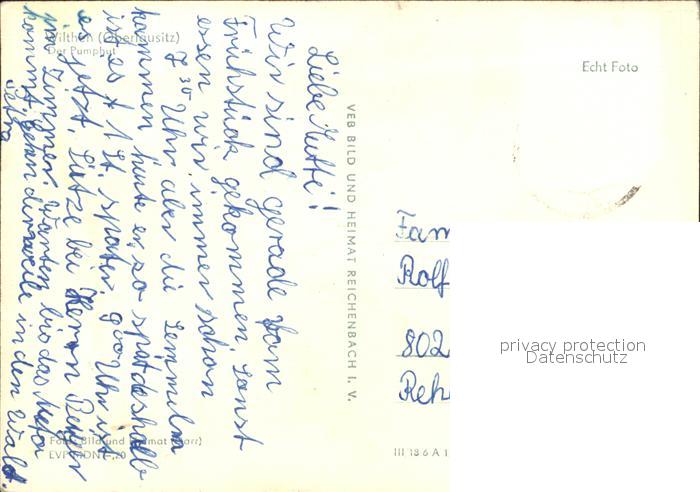 Wilthen (Oberlausitz)
Der Pumphut
Echt Foto
Liebe Mutti!
Wir sind gerade vom
Frühstück gekommen. Sonst
essen wir immer schon
7 30 Uhr aber die Semmeln
kammen heute erst so spät deshalb
ist es 1 St. später. 9 00 Uhr ist
es jetzt. Sitze bei Herrn
im Zimmer. Warten bis das
kommt, gehen derweile in den Wald.
Petra
VEB BILD UND HEIMAT REICHENBACH I. V.
Fam
Rolf
802
Reh
privacy protection
Datenschutz
Foto: Bild und Heimat
EVP MDN -,20
III 18 6 A 1